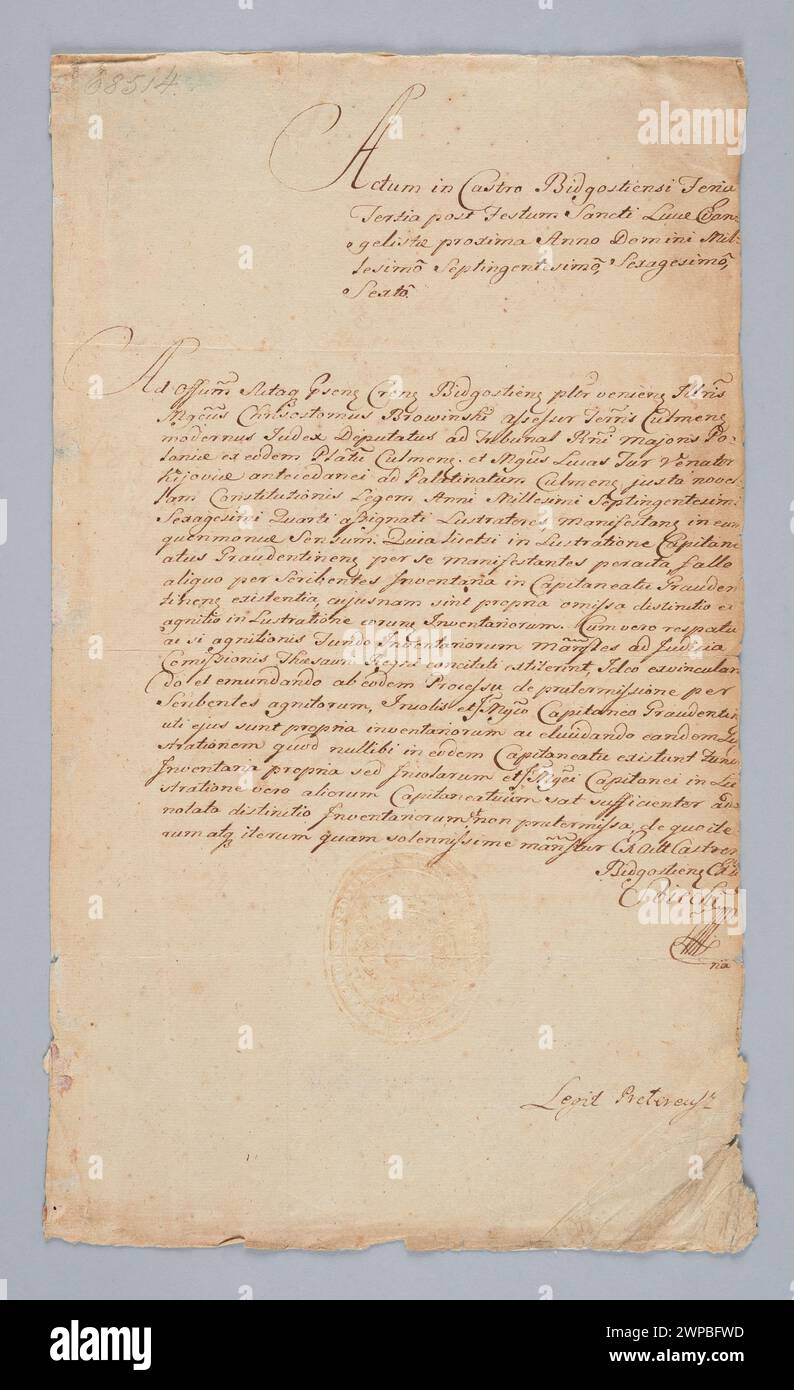 68514.
Actum in Castro Bidgostiensi Feria
Tertia post Festum Sancti Lucæ Evan-
gelistæ proxima Anno Domini Mil-
lesimõ Septingentesimõ, Sexagesimõ,
Sextõ.
Ad Offum Actaq Bidgostien plr veniens
Chrisostomus Browinski assesur Terris Culmen
modernus Judex Deputatus ad Tribunal Rni majoris Po-
loniæ ex eodem Plattu Culmen. et Mgus Lucas Tur Venator
Kijoviæ antecedanei ad Palatinatum Culmen justa novel-
lam Constitutionis Legem Anni Millesimi Septingentesimi
Sexagesimi Quarti assignati Lustratores, manifestan in eum
quenmonue Sensum. Quia licet in Lustratione Capitane
atus Graudentinen per se manifestantes peracta, fallo
aliquo per Scribentes Inventaria in Capitaneatu Grauden
tinen existentia, cujusnam sint propria omissa distinctio et
agnitio in Lustratione eorum Inventariorum. Cum vero respatu
ac si agnitionis Fundo Inventariorum manstes ad Judicia
Comissionis Thesauri Regni concitati extiterint, Ideo exvinculan
do et emundando ab eodem Processu de prætermissione per
Scribentes agnitorum, Incolis et Mgco Capitaneo Graudentin
uti ejus sunt propria inventariorum ac elucidando eandem Lu
strationem quod nullibi in eodem Capitaneatu existunt Fundi
Inventaria propria sed Incolarum et Mgci Capitanei in Lu
stratione vero aliorum Capitaneatuum sat sufficienter ad-
notata distinctio Inventariorum non prætermissa, de quo ite
rum atq iterum quam solennissime manstur Ex Actis Castren
Bidgostien
Legit
alamy
Image ID: 2WPBFWD
www.alamy.com